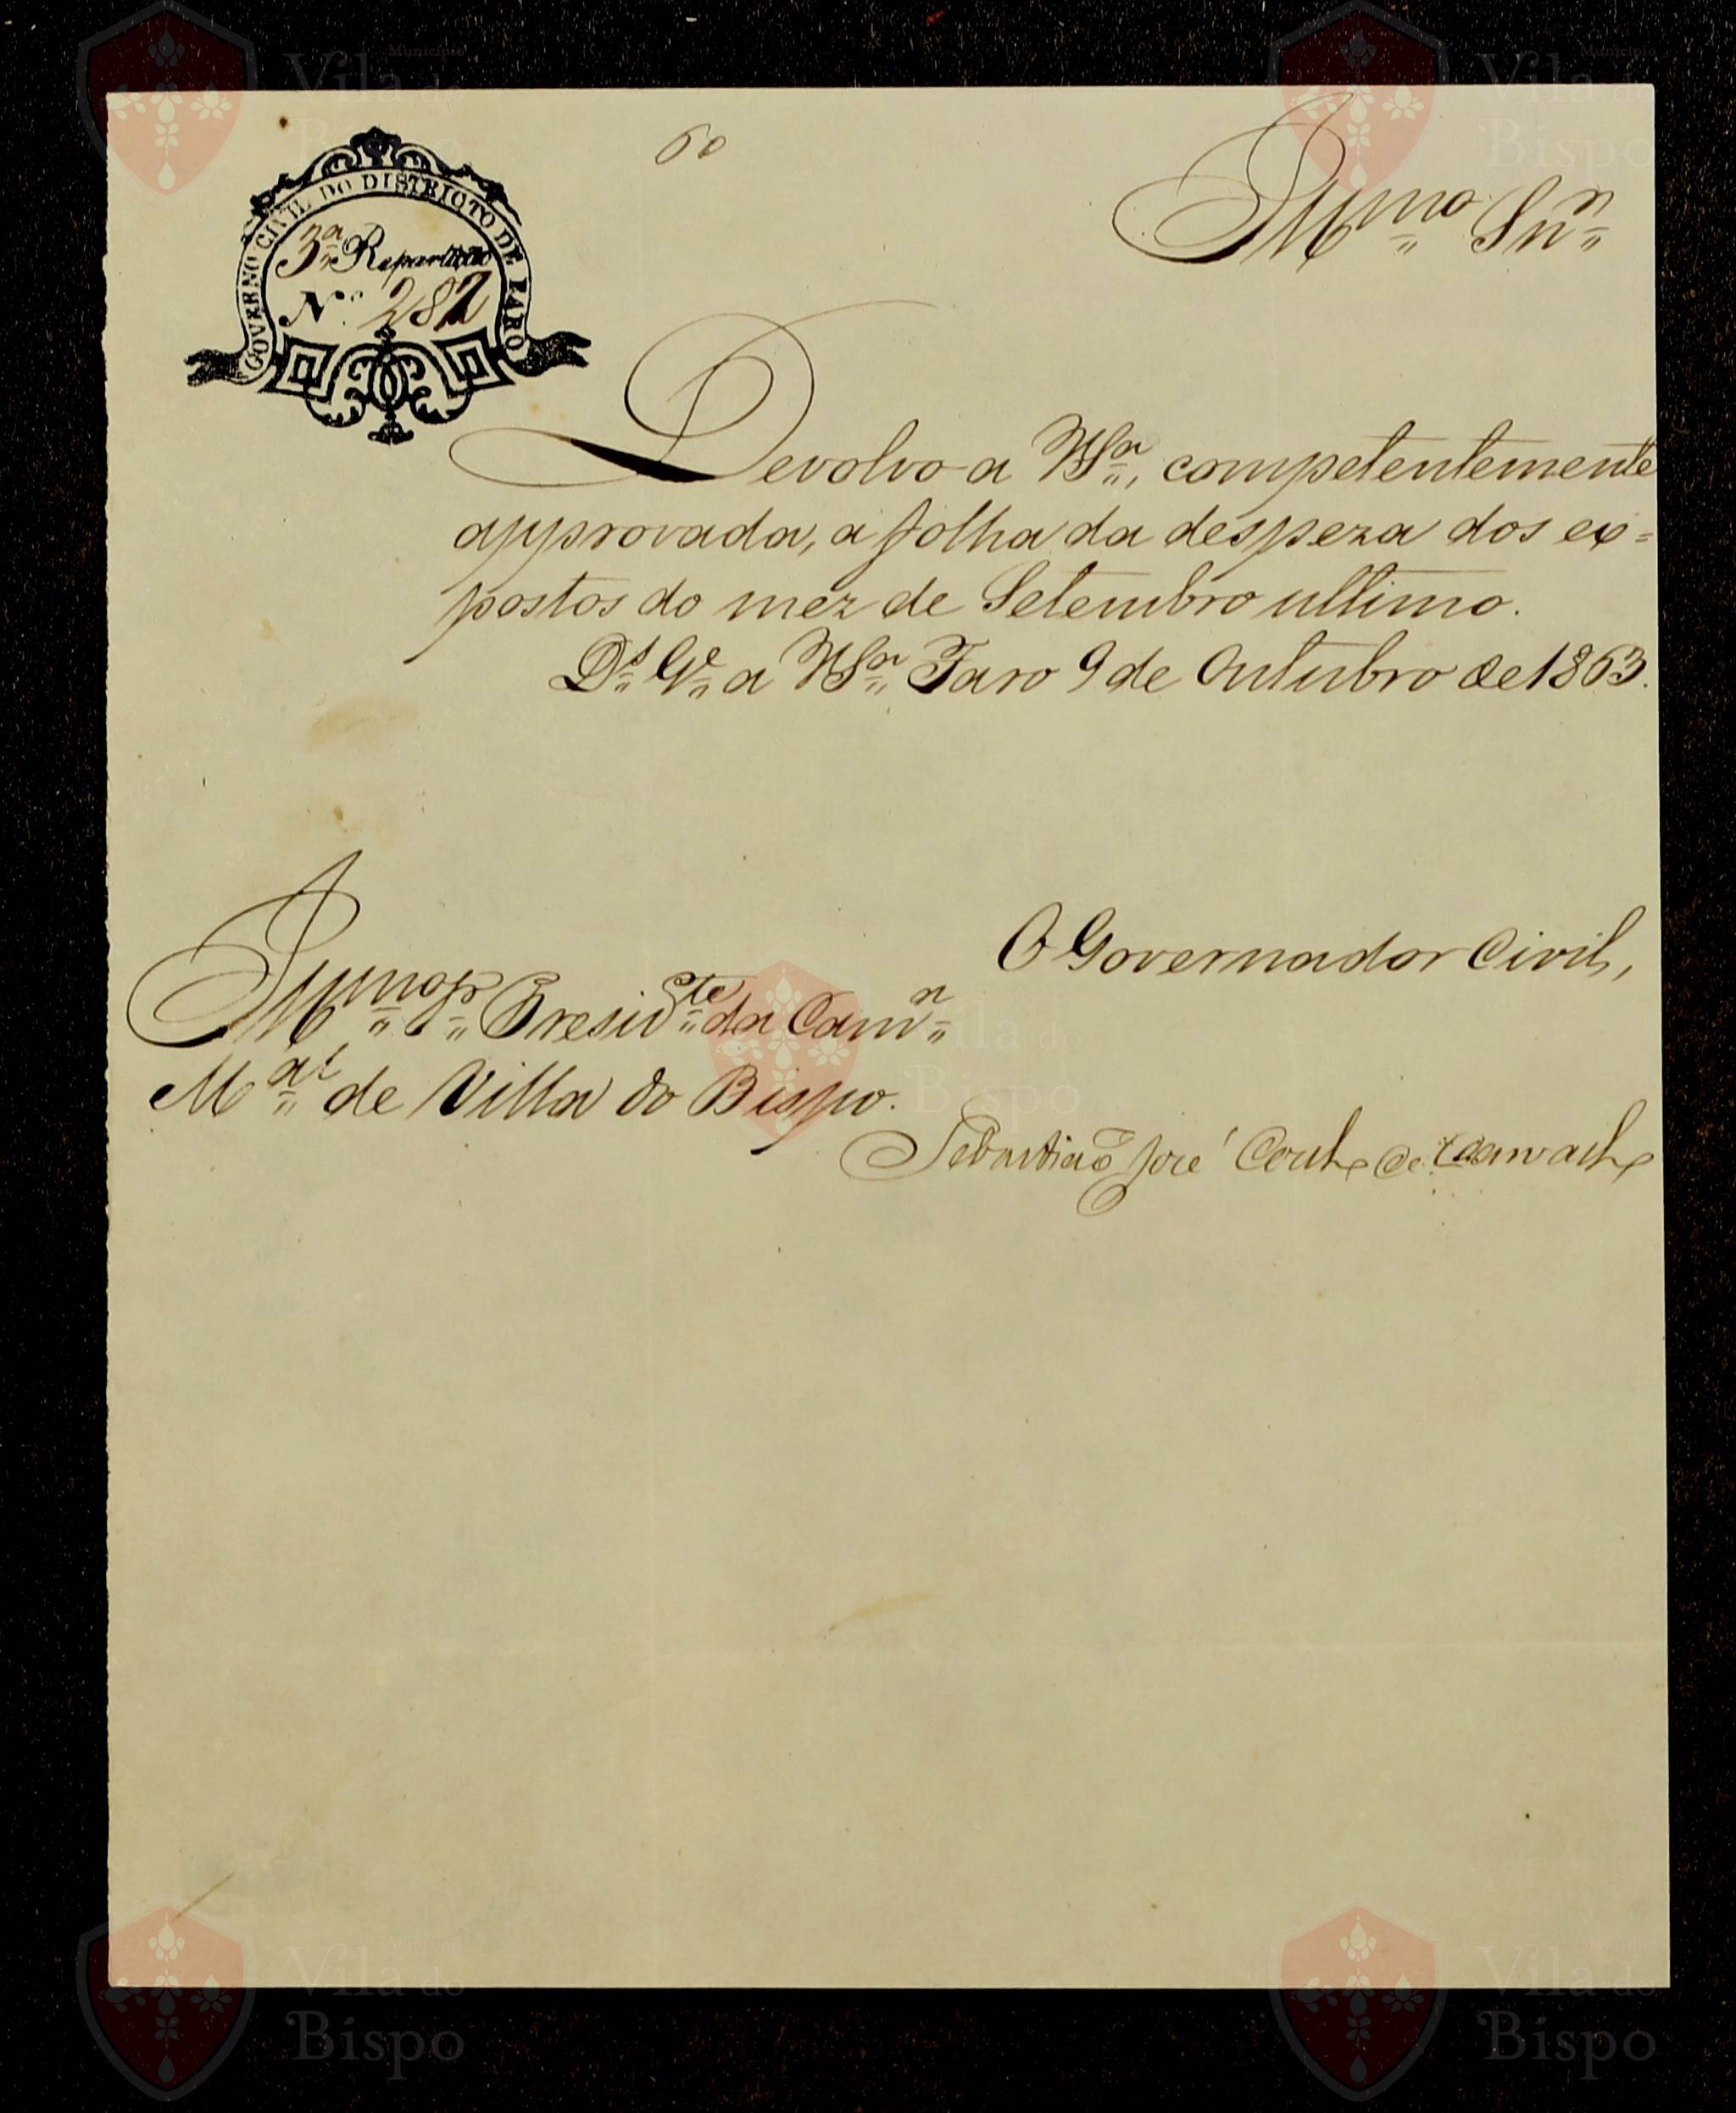 60
GOVERNO CIVIL DO DISTRICTO DE FARO
3ª Repartição
N.º 282
Illmo Snr
Devolvo a VSª, competentemente
approvada, a folha da despeza dos ex=
postos do mez de Setembro ultimo.
Ds Ge a VSª Faro 9 de Outubro de 1863.
O Governador Civil,
Illmo Sr Presidte da Camrª
Mal de Villa do Bispo.
Sebastião José Coelho de Carvalho
Município
Vila do
Bispo
Município
Vila do
Bispo
Vila do
Bispo
Vila do
Bispo
Vila do
Bispo